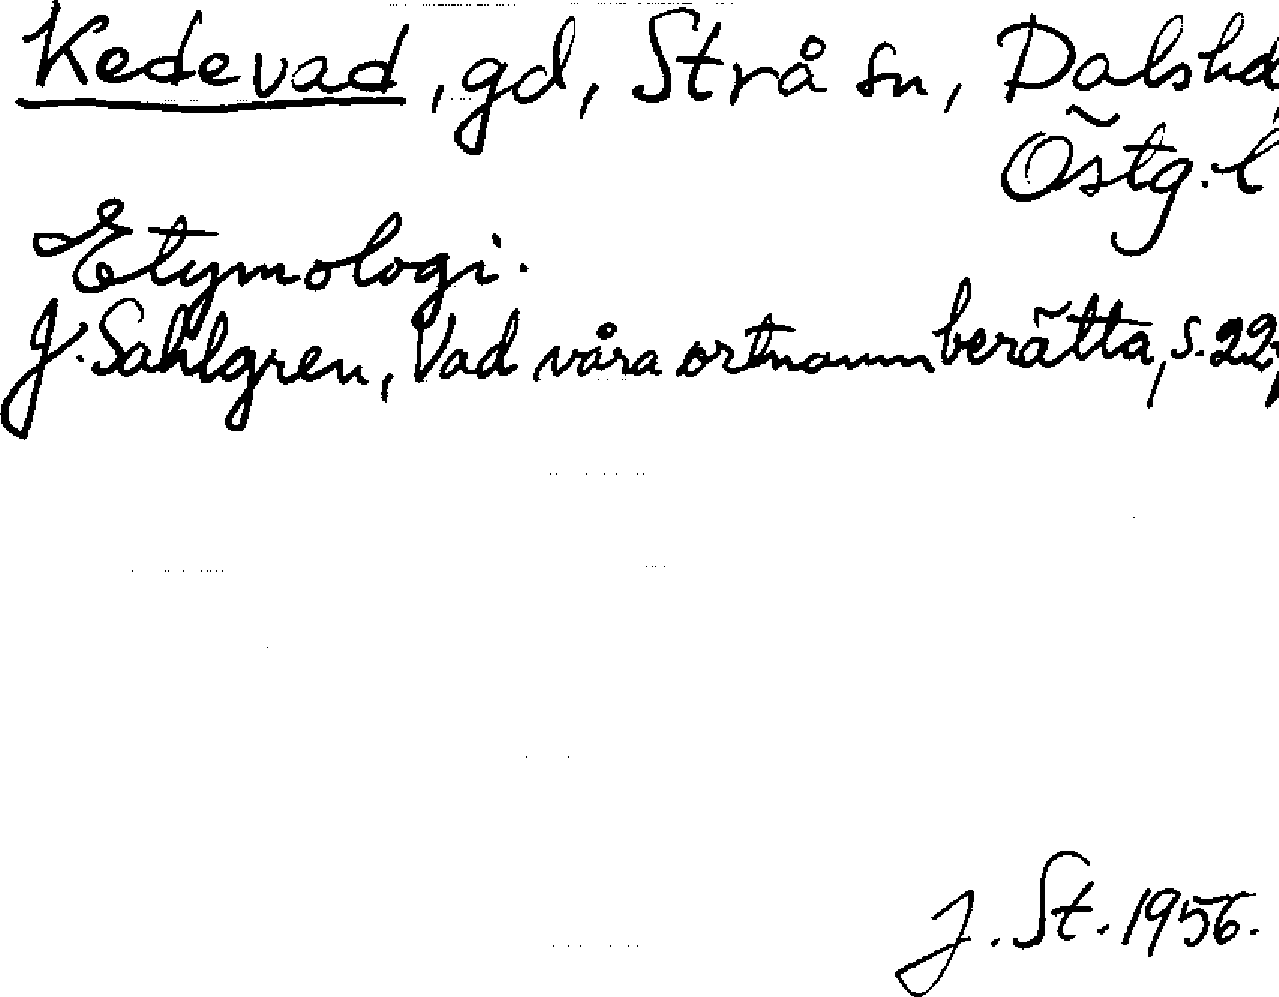 Kedevad, gd, Strå sn, Dalshd,
Östg. l
Etymologi.
J. Sahlgren, Vad våra ortnamn berätta, s. 22,
J. St. 1956.